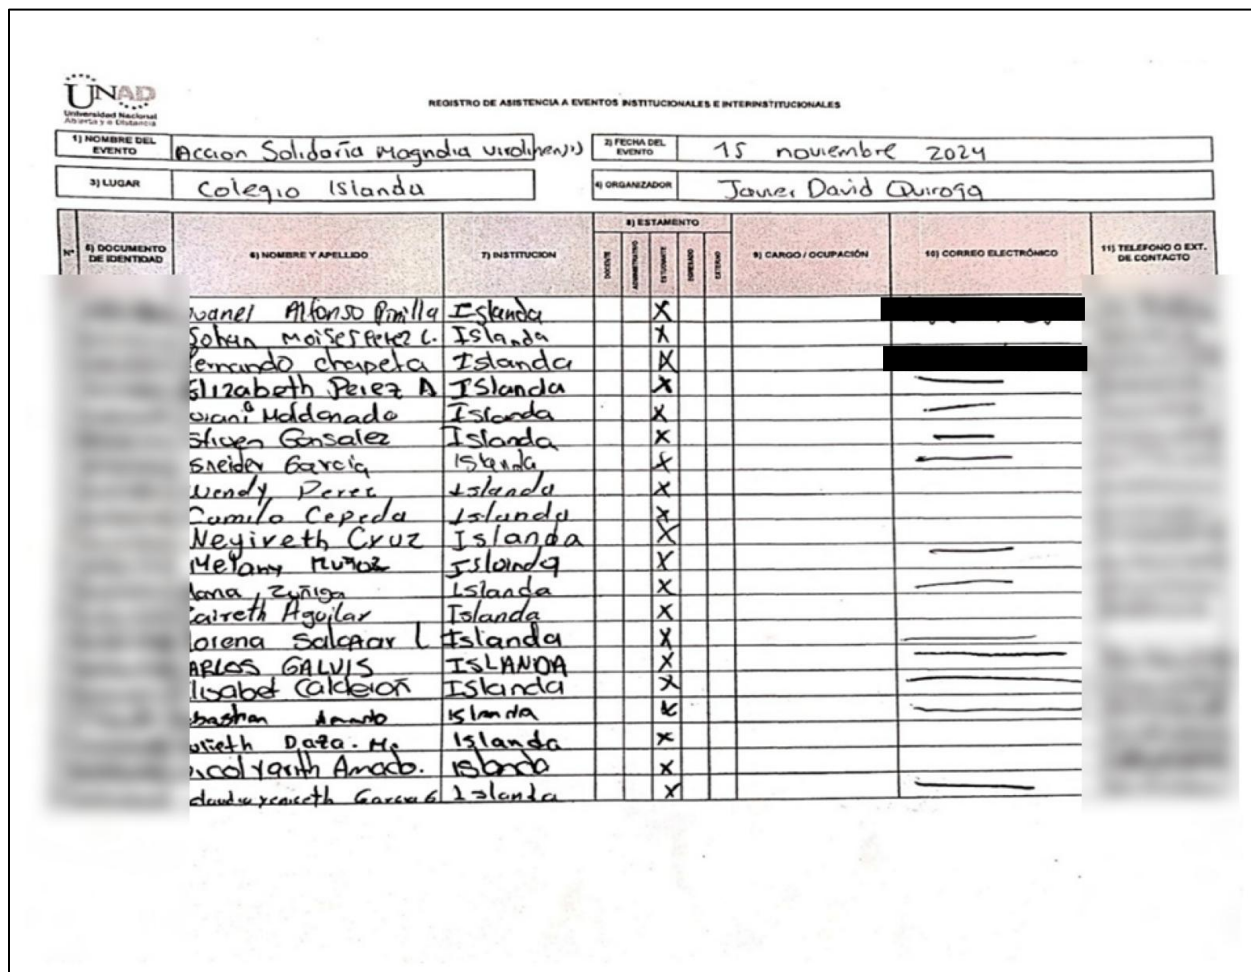 UNAD
Universidad Nacional
Abierta y a Distancia
REGISTRO DE ASISTENCIA A EVENTOS INSTITUCIONALES E INTERINSTITUCIONALES
1) NOMBRE DEL EVENTO Accion Solidaria Magnolia virolinensis 2) FECHA DEL EVENTO 15 noviembre 2024
3) LUGAR Colegio Islanda 4) ORGANIZADOR Javier David Quiroga
N° 5) DOCUMENTO DE IDENTIDAD 6) NOMBRE Y APELLIDO 7) INSTITUCION 8) ESTAMENTO DOCENTE ADMINISTRATIVO ESTUDIANTE EGRESADO EXTERNO 9) CARGO / OCUPACIÓN 10) CORREO ELECTRÓNICO 11) TELEFONO O EXT. DE CONTACTO
Alfonso Pinilla Islanda X
Johan Moises Perez L. Islanda X
chapeta Islanda X
Elizabeth Perez A Islanda X
Maldonado Islanda X
Gonsalez Islanda X
sneider Garcia Islanda X
Wendy Perez Islanda X
Camilo Cepeda Islanda X
Neyireth Cruz Islanda X
Melany Muñoz Islanda X
Zuñiga Islanda X
aireth Aguilar Islanda X
orena Salazar L Islanda X
ARLOS GALVIS ISLANDA X
lisabet Calderon Islanda X
bastian Amado Islanda X
Daza. Islanda X
icol Amado. Islanda X
Garcia G Islanda X